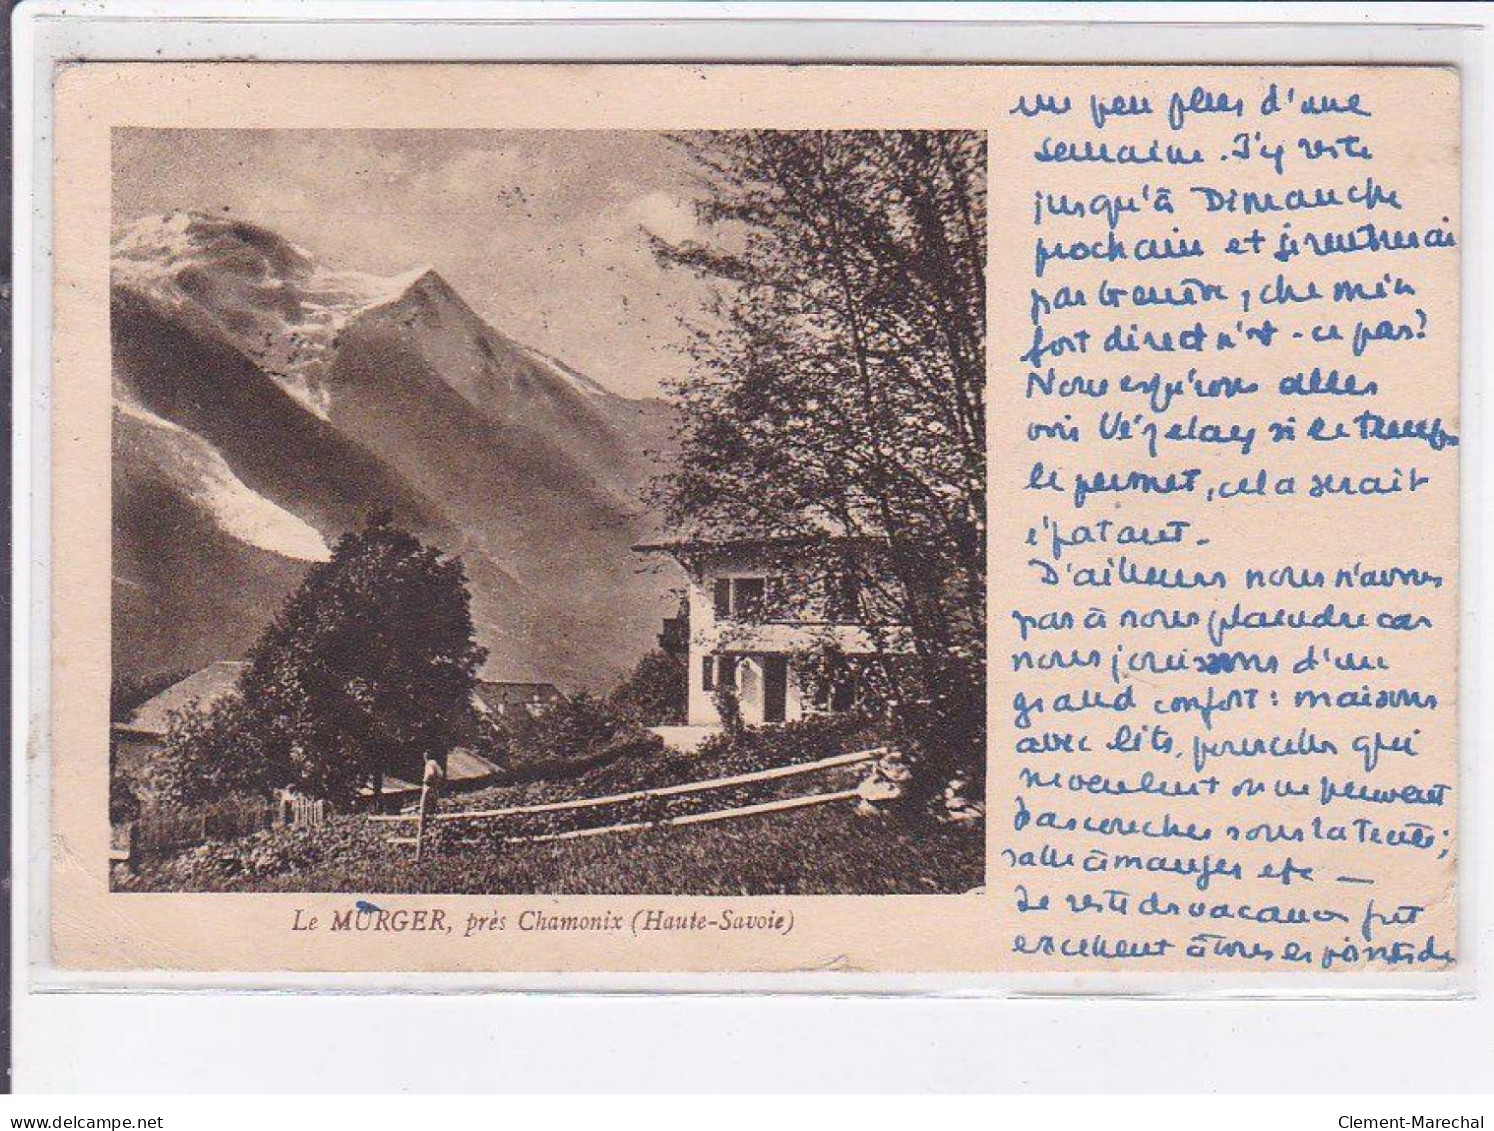 un peu plus d'une
semaine. J'y reste
jusqu'à Dimanche
prochain et je rentrerai
par Genève, chemin
fort direct n'est-ce pas?
Nous espérons aller
voir Vézelay si le temps
le permet, cela serait
épatant.
D'ailleurs nous n'avons
pas à nous plaindre car
nous jouissons d'un
grand confort : maisons
avec lits, pour celles qui
ne veulent ou ne peuvent
pas coucher sous la tente;
salle à manger etc —
Le reste des vacances fut
excellent à tous les points de
Le MÜRGER, près Chamonix (Haute-Savoie)
delcampe.net
Clement-Marechal